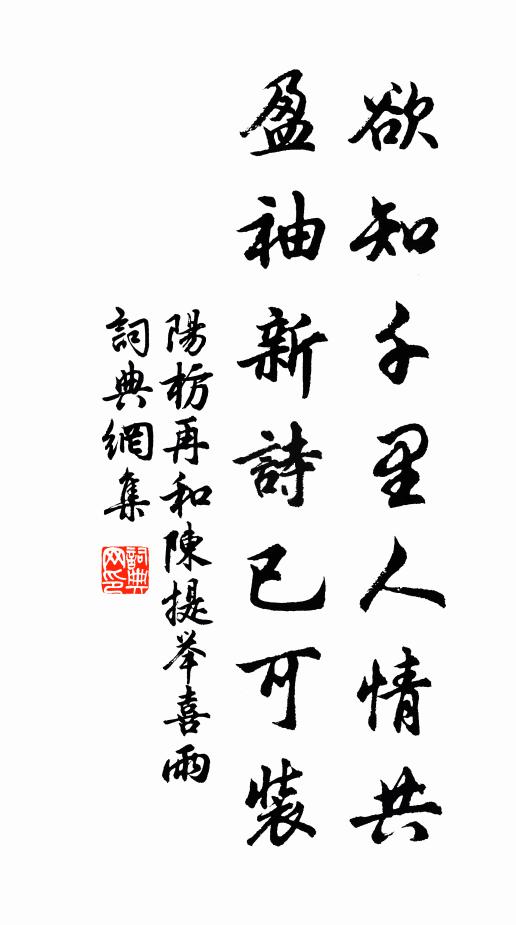 欲知千里人情共
盈袖新詩已可裝
陽枋再和陳提举喜雨
詞典網集
詞典网印